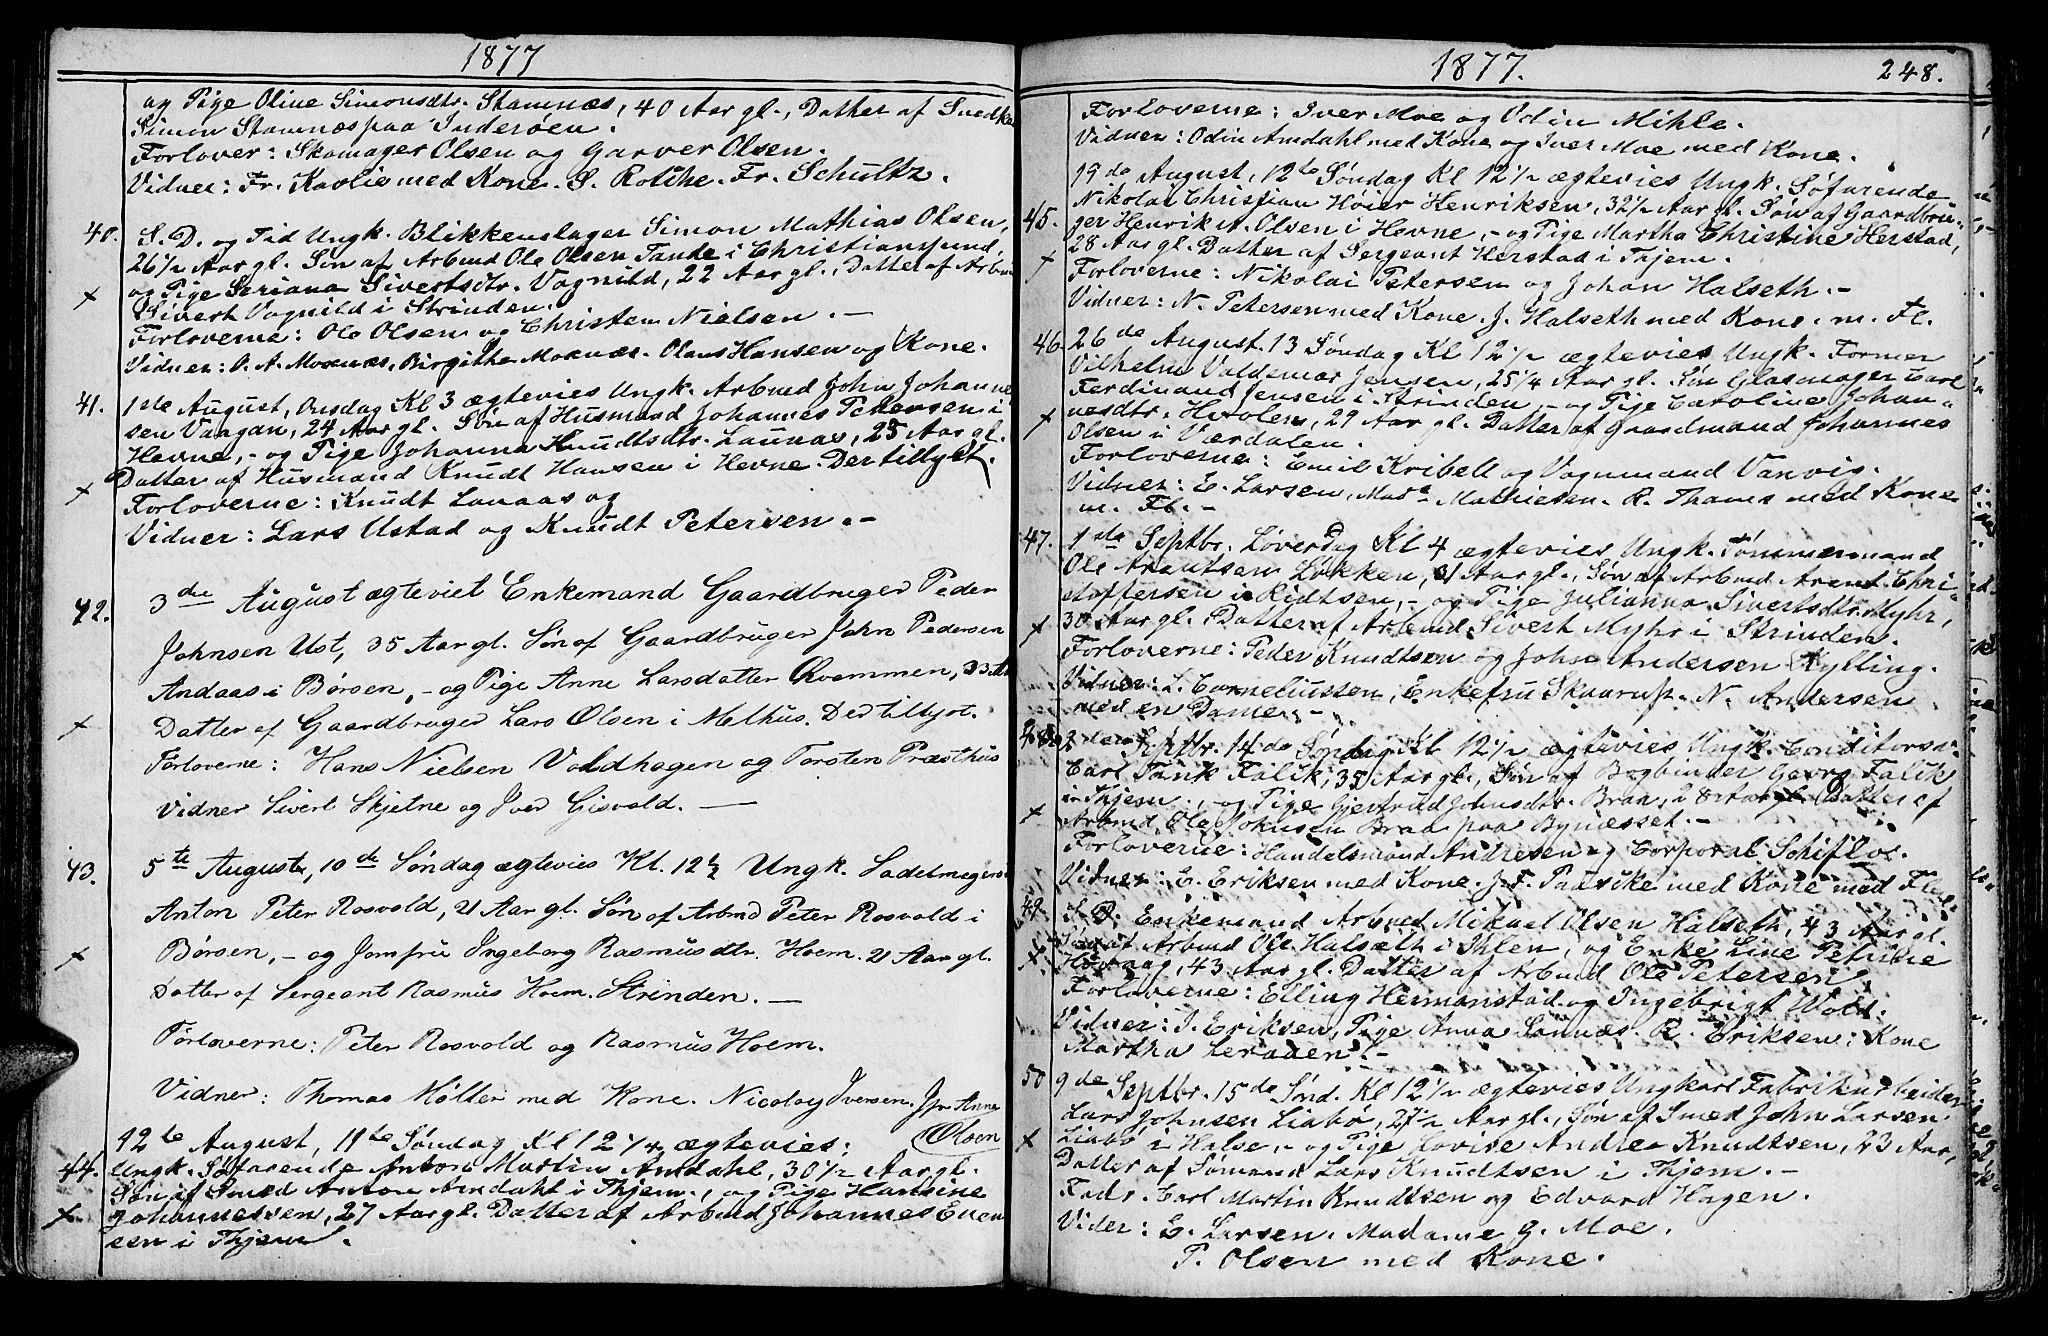 1877
og Pige Oline Simonsdtr. Stamnæs, 40 Aar gl., Datter af Snedker
Simon Stamnæs paa Inderøen.
Forlover: Skomager Olsen og Garver Olsen.
Vidner: Fr. Kavlie med Kone. S. Rotthe. Fr. Schultz.
40. S. D. og Tid Ungk. Blikkenslager Simon Mathias Olsen,
26½ Aar gl. Søn af Arbmd Ole Olsen Tande i Christianssund,
og Pige Seriana Sivertsdtr. Vognild, 22 Aar gl., Datter af Arbm
x Sivert Vognild i Strinden.
Forloverne: Ole Olsen og Christen Nielsen. —
Vidner: O. A. Moxnæs, Birgitha Moxnæs. Olaus Hansen og Kone.
41. 1ste August, Onsdag Kl 3 ægtevies Ungk. Arbmd John Johanne
sen Vaagan, 24 Aar gl. Søn af Husmand Johannes Petersen i
Hevne, - og Pige Johanna Knudtsdtr. Launas, 25 Aar gl.
Datter af Husmand Knudt Hansen i Hevne. Der tillyst.
x Forloverne: Knudt Lanaas og
Vidner: Lars Ustad og Knudt Petersen. —
42. 3die August ægteviet Enkemand Gaardbruger Peder
Johnsen Ust, 35 Aar gl. Søn af Gaardbruger John Pedersen
Andaas i Børsen, - og Pige Anne Larsdatter Qvammen, 33 Aar
x Datter af Gaardbruger Lars Olsen i Melhus. Der tillyst.
Forloverne: Hans Nielsen Voldhagen og Torsten Præsthus
Vidner Sivert Skjetne og Iver Gisvold. —
43. 5te August, 10de Søndag ægtevies Kl. 12½ Ungk. Sadelmagersv
Anton Peter Rosvold, 21 Aar gl. Søn af Arbmd Peter Rosvold i
x Børsen, - og Jomfru Ingeborg Rasmusdtr. Hoem. 21 Aar gl.
Datter af Sergeant Rasmus Hoem. Strinden. —
Forloverne: Peter Rosvold og Rasmus Hoem.
Vidner: Thomas Møller med Kone. Nicolay Iversen. Jfr Anne
Olsen
12te August, 11te Søndag Kl 12¼ ægtevies:
44. Ungk. Søfarende Anton Martin Amdahl, 30½ Aar gl.
Søn af Smed Anton Amdahl i Thjem., og Pige Hansine
x Johannessen, 27 Aar gl. Datter af Arbmd Johannes Even
sen i Thjem.
1877. 248.
Forloverne: Iver Moe og Odin Mihle.
Vidner: Odin Amdahl med Kone og Iver Moe med Kone.
19de August, 12te Søndag Kl 12½ ægtevies Ungk. Søfarende
Nikolai Christian Høier Henriksen, 32½ Aar gl. Søn af Gaardbru-
45. ger Henrik A. Olsen i Hevne, - og Pige Martha Christine Herstad,
28 Aar gl. Datter af Sergeant Herstad i Thjem.
x Forloverne: Nikolai Petersen og Johan Halseth. —
Vidner: N. Petersen med Kone. J. Halseth med Kone. m. Fl.
46. 26de August. 13 Søndag Kl 12½ ægtevies Ungk. Former
Vilhelm Valdemar Jensen, 25¼ Aar gl. Søn Glasmager Carl
Ferdinand Jensen i Strinden, - og Pige Caroline Johan-
x nesdtr. Hexolem, 29 Aar gl. Datter af Gaardmand Johannes
Olsen i Værdalen.
Forloverne: Emil Kribell og Vognmand Vanvig.
Vidner: E. Larsen, Mad. Mathiesen. R. Thams med Kone
m. Fl. —
47. 1ste Septbr. Løverdag Kl 4 ægtevies Ungk. Tømmermand
Ole Arentsen Løkken, 31 Aar gl., Søn af Arbmd Arent Chri-
stoffersen i Ridtsen, - og Pige Julianna Sivertsdtr. Myhr,
x 30 Aar gl. Datter af Arbmd Sivert Myhr i Strinden.
Forloverne: Peder Knudtsen og John Andersen Kylling.
Vidner: L. Corneliussen, Enkefru Skaarup. N. Andersen
med en Dame. —
48. 2den Septbr. 14de Søndag Kl 12½ ægtevies Ungk. Conditorsv.
Carl Tank Falck, 35 Aar gl., Søn af Bogbinder Georg Falck
i Thjem., og Pige Gjertrud Johnsdtr. Braa, 28 Aar gl. Datter af
x Arbmd Ole Johnsen Braa paa Bynæsset. —
Forloverne: Handelsmand Andresen og Corporal Schifloe.
Vidner: E. Eriksen med Kone. J. F. Pauscke med Kone med Fl.
49. S. D. Enkemand Arbmd Mikael Olsen Halseth, 43 Aar gl.
Søn af Arbmd Ole Halseth i Ihlen, og Enke Line Petrine
x. Hovaag, 43 Aar gl. Datter af Arbmd Ole Petersen
Forloverne: Elling Hermanstad og Ingebrigt Wold.
Vidner: I. Eriksen, Pige Anna Sannæs. R. Eriksen: Kone
Martha Leraden. —
50 9de Septbr. 15de Sønd. Kl 12½ ægtevies Ungkarl Fabrikarbeider
Lars Johnsen Liabø, 27½ Aar gl., Søn af Smed John Larsen
x Liabø i Halse, - og Pige Lovise Andrea Knudtsen, 23 Aar,
Datter af Sømand Lars Knudtsen i Thjem. —
Fadr. Carl Martin Knudtsen og Edvard Hagen.
Vider: E. Larsen. Madame G. Moe.
P. Olsen med Kone.